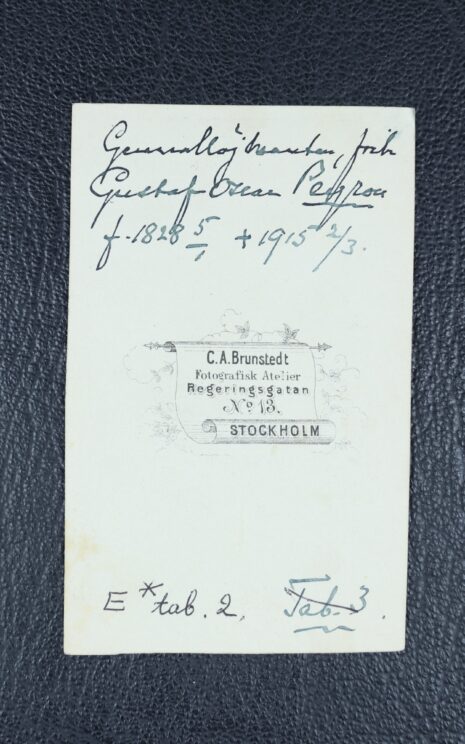 Generallöjtnanten, frih
Gustaf Oscar Peyron
f. 1828 5/1 + 1915 2/3.
C. A. Brunstedt
Fotografisk Atelier
Regeringsgatan
No 13.
STOCKHOLM
E * tab. 2, Tab. 3.